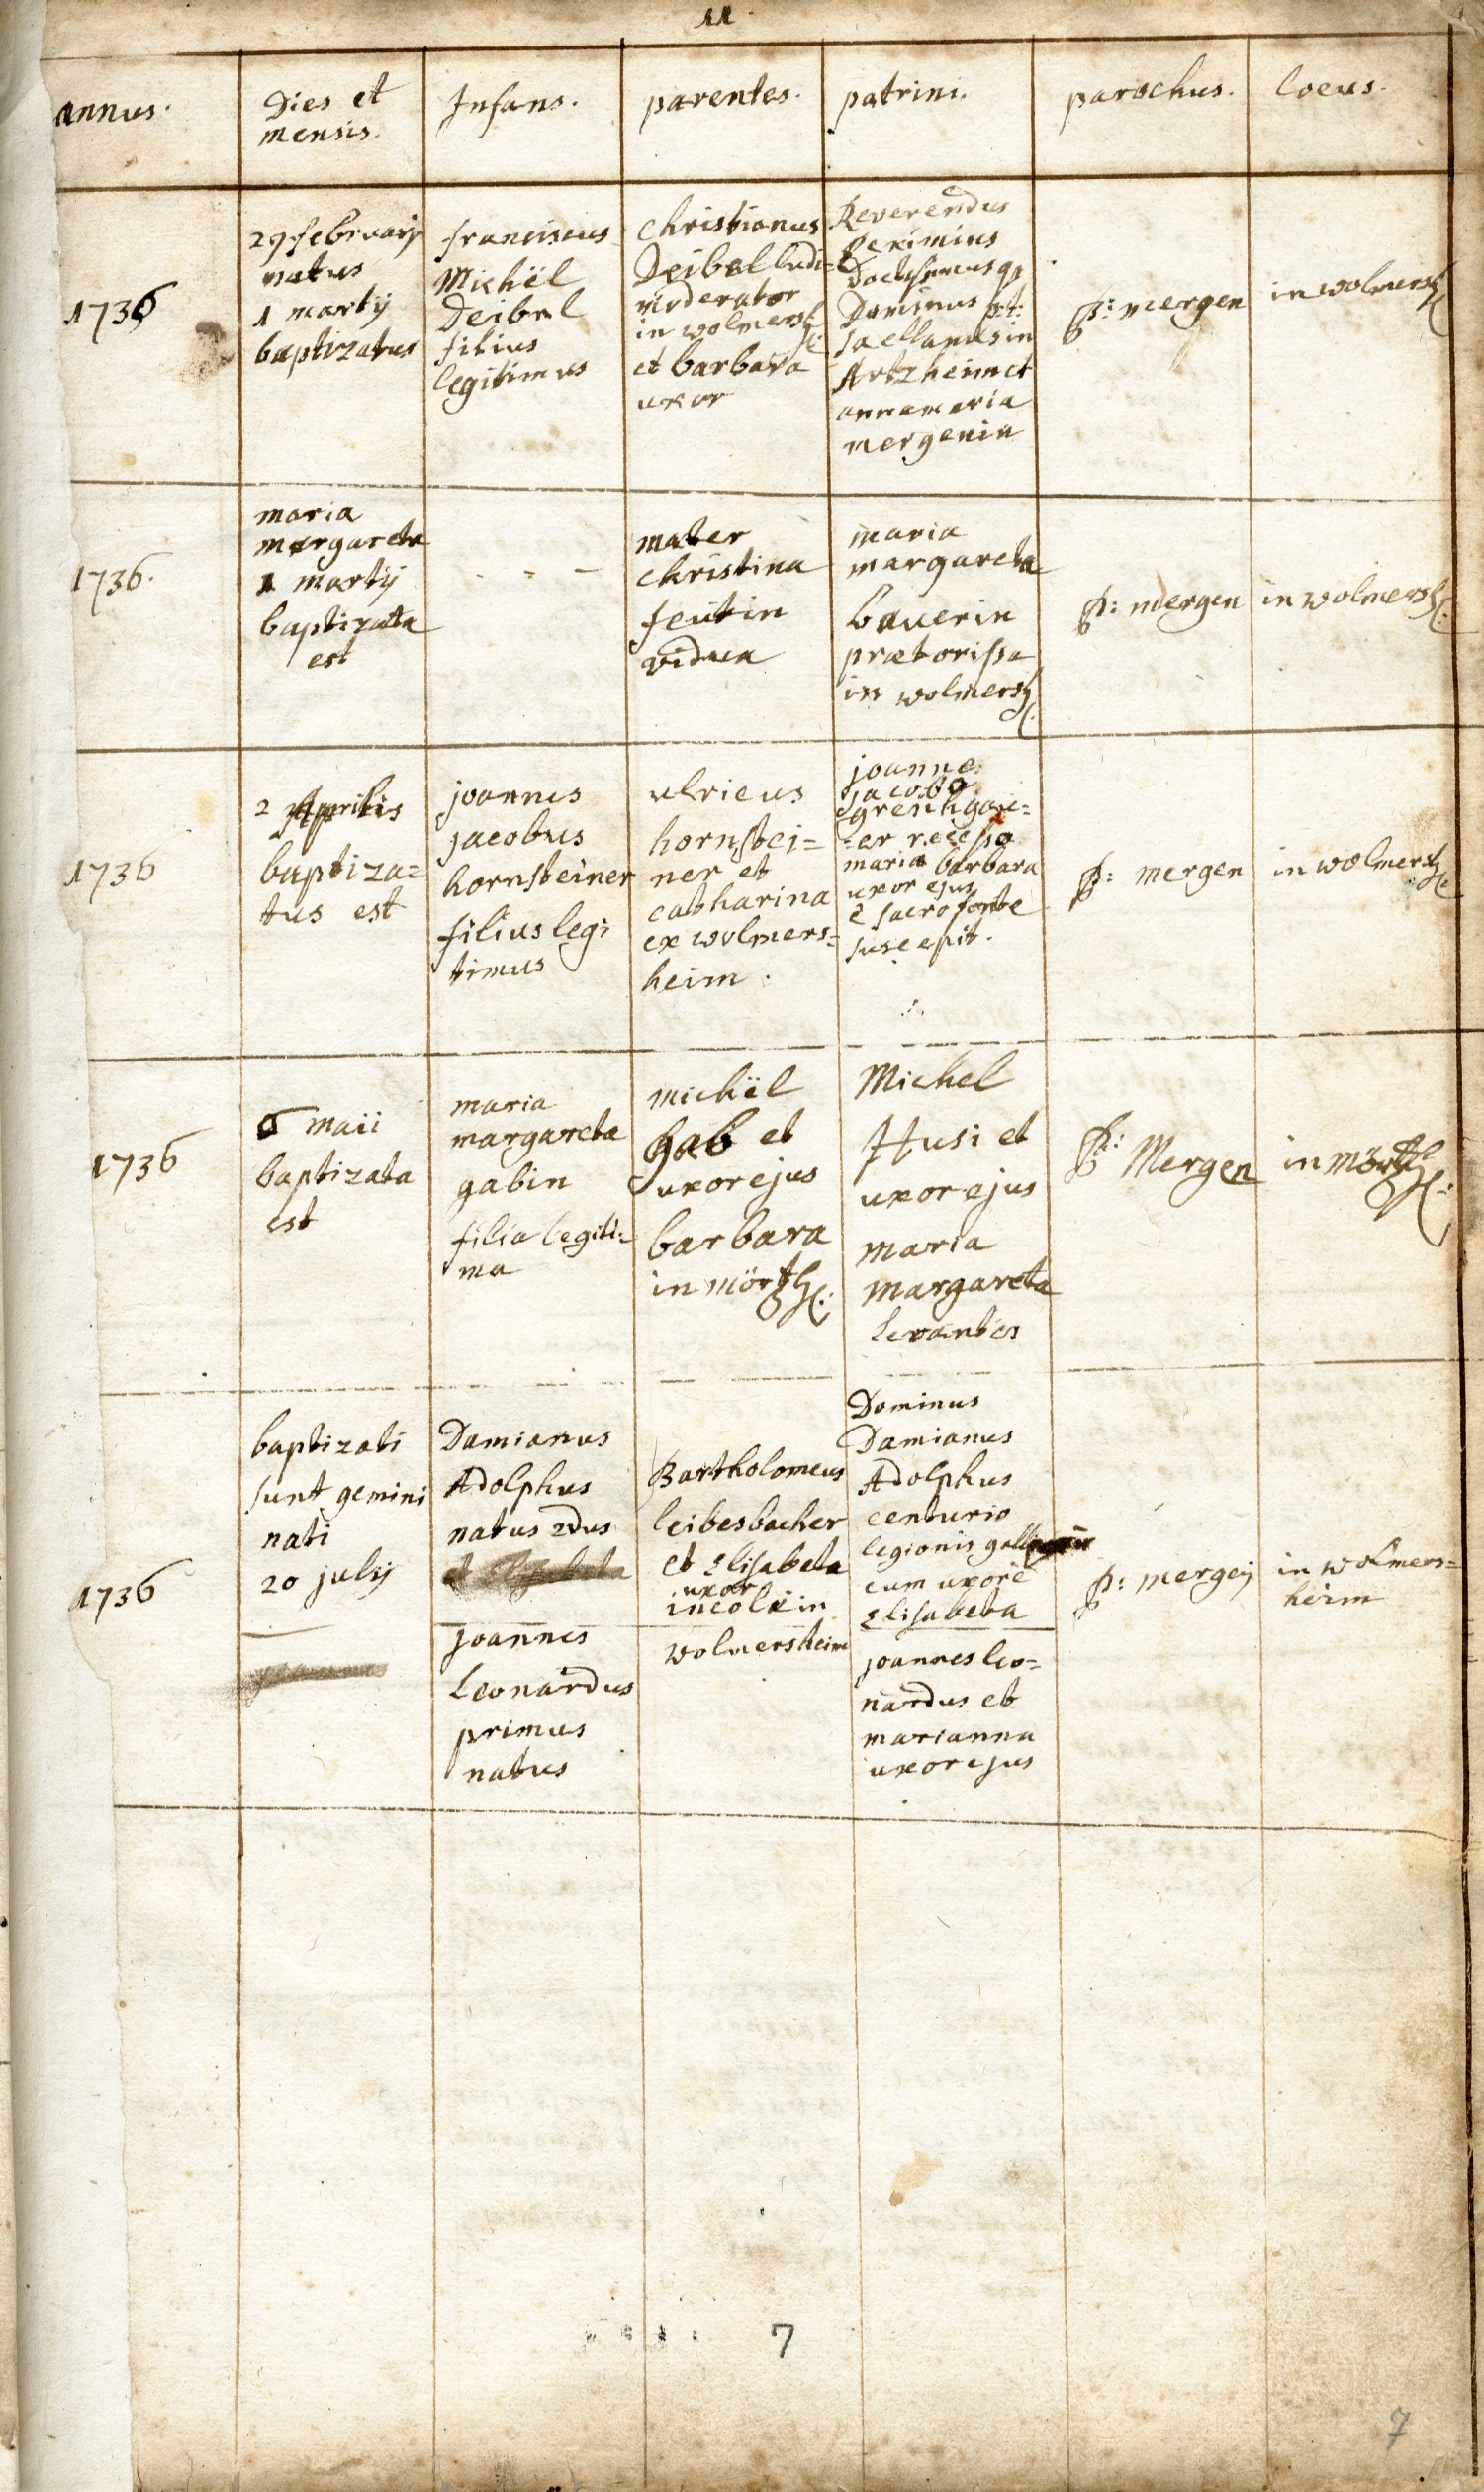 11.
annus.
Dies et
mensis.
Infans.
parentes.
patrini.
parochus.
locus.
1736
29 februarij
natus
1 martij
baptizatus
franciscus
Michël
Deibel
filius
legitimus
christianus
Deibel ludi=
moderator
in wolmersh:
et barbara
uxor
Reverendus
Dominus p.t.
sacellanus in
Artzheim et
anna maria
mergenin
p: mergen
in wolmersh:
1736.
maria
margareta
1 martij
baptizata
est
- - -
mater
christina
feütin
vidua
maria
margareta
bauerin
prætorissa
in wolmersh:
p: mergen
in wolmersh:
1736
2 Aprilis
baptiza=
tus est
joannes
jacobus
hornsteiner
filius legi
timus
ulricus
hornstei=
ner et
catharina
ex wolmers=
heim.
joanne
jacobo
=er
maria barbara
uxor ejus
è sacro fonte
suscepit.
p: mergen
in wolmersh:
1736
6 maii
baptizata
est
maria
margareta
gabin
filia legiti=
ma
michël
gab et
uxor ejus
barbara
in mörtzh:
Michel
Husi et
uxor ejus
maria
margareta
levantes
p: Mergen
in mörtzh:
1736
baptizati
sunt gemini
nati
20 julij
Damianus
Adolphus
natus 2dus
joannes
Leonardus
primus
natus
Bartholomeus
leibesbacher
et Elisabeta
uxor
incolæ in
wolmersheim
Dominus
Damianus
Adolphus
centurio
legionis
cum uxore
Elisabeta
joannes leo=
nardus et
marianna
uxor ejus
p: mergen
in wolmers=
heim
7
7